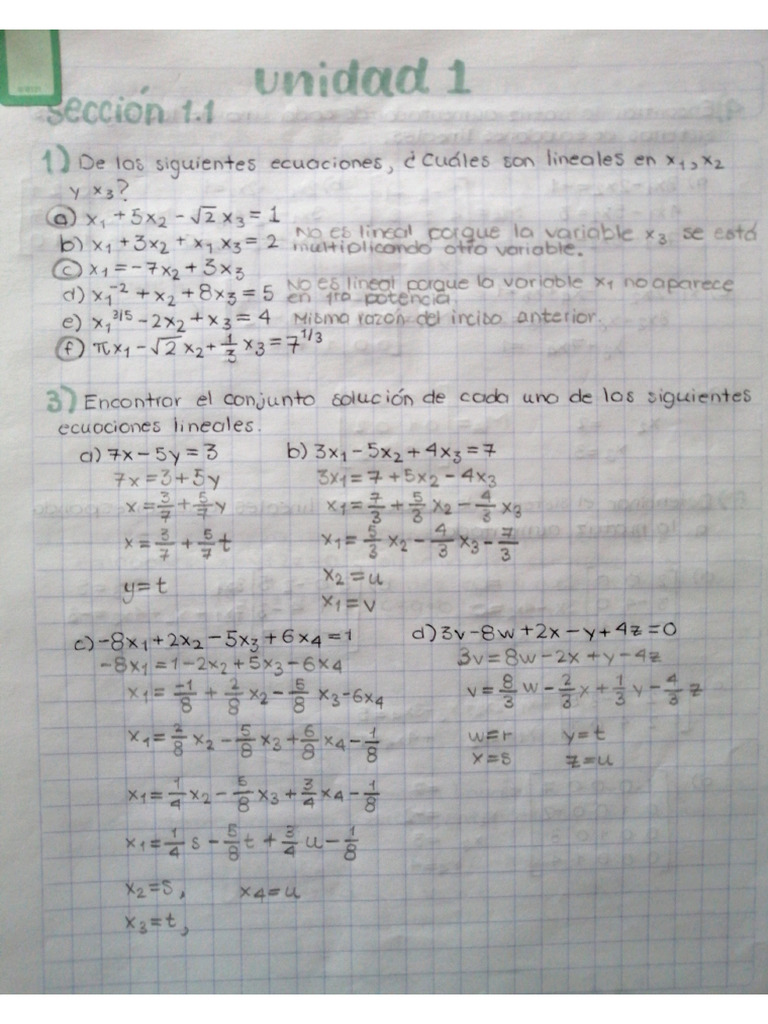 unidad 1
Sección 1.1
1) De los siguientes ecuaciones, ¿Cuáles son lineales en x₁, x₂
y x₃?
a) x₁ + 5x₂ - √2 x₃ = 1
b) x₁ + 3x₂ + x₁ x₃ = 2 No es lineal porque la variable x₃ se está multiplicando otra variable.
c) x₁ = -7x₂ + 3x₃
d) x₁⁻² + x₂ + 8x₃ = 5 No es lineal porque la variable x₁ no aparece en 1ra potencia
e) x₁^3/5 - 2x₂ + x₃ = 4 Misma razón del inciso anterior.
f) πx₁ - √2 x₂ + 1/3 x₃ = 7^1/3
3) Encontrar el conjunto solución de cada uno de los siguientes
ecuaciones lineales.
a) 7x - 5y = 3
7x = 3 + 5y
x = 3/7 + 5/7 y
x = 3/7 + 5/7 t
y = t
b) 3x₁ - 5x₂ + 4x₃ = 7
3x₁ = 7 + 5x₂ - 4x₃
x₁ = 7/3 + 5/3 x₂ - 4/3 x₃
x₁ = 5/3 x₂ - 4/3 x₃ - 7/3
x₂ = u
x₁ = v
c) -8x₁ + 2x₂ - 5x₃ + 6x₄ = 1
-8x₁ = 1 - 2x₂ + 5x₃ - 6x₄
x₁ = -1/8 + 2/8 x₂ - 5/8 x₃ - 6x₄
x₁ = 2/8 x₂ - 5/8 x₃ + 6/8 x₄ - 1/8
x₁ = 1/4 x₂ - 5/8 x₃ + 3/4 x₄ - 1/8
x₁ = 1/4 s - 5/8 t + 3/4 u - 1/8
x₂ = s, x₄ = u
x₃ = t,
d) 3v - 8w + 2x - y + 4z = 0
3v = 8w - 2x + y - 4z
v = 8/3 w - 2/3 x + 1/3 y - 4/3 z
w = r y = t
x = s z = u